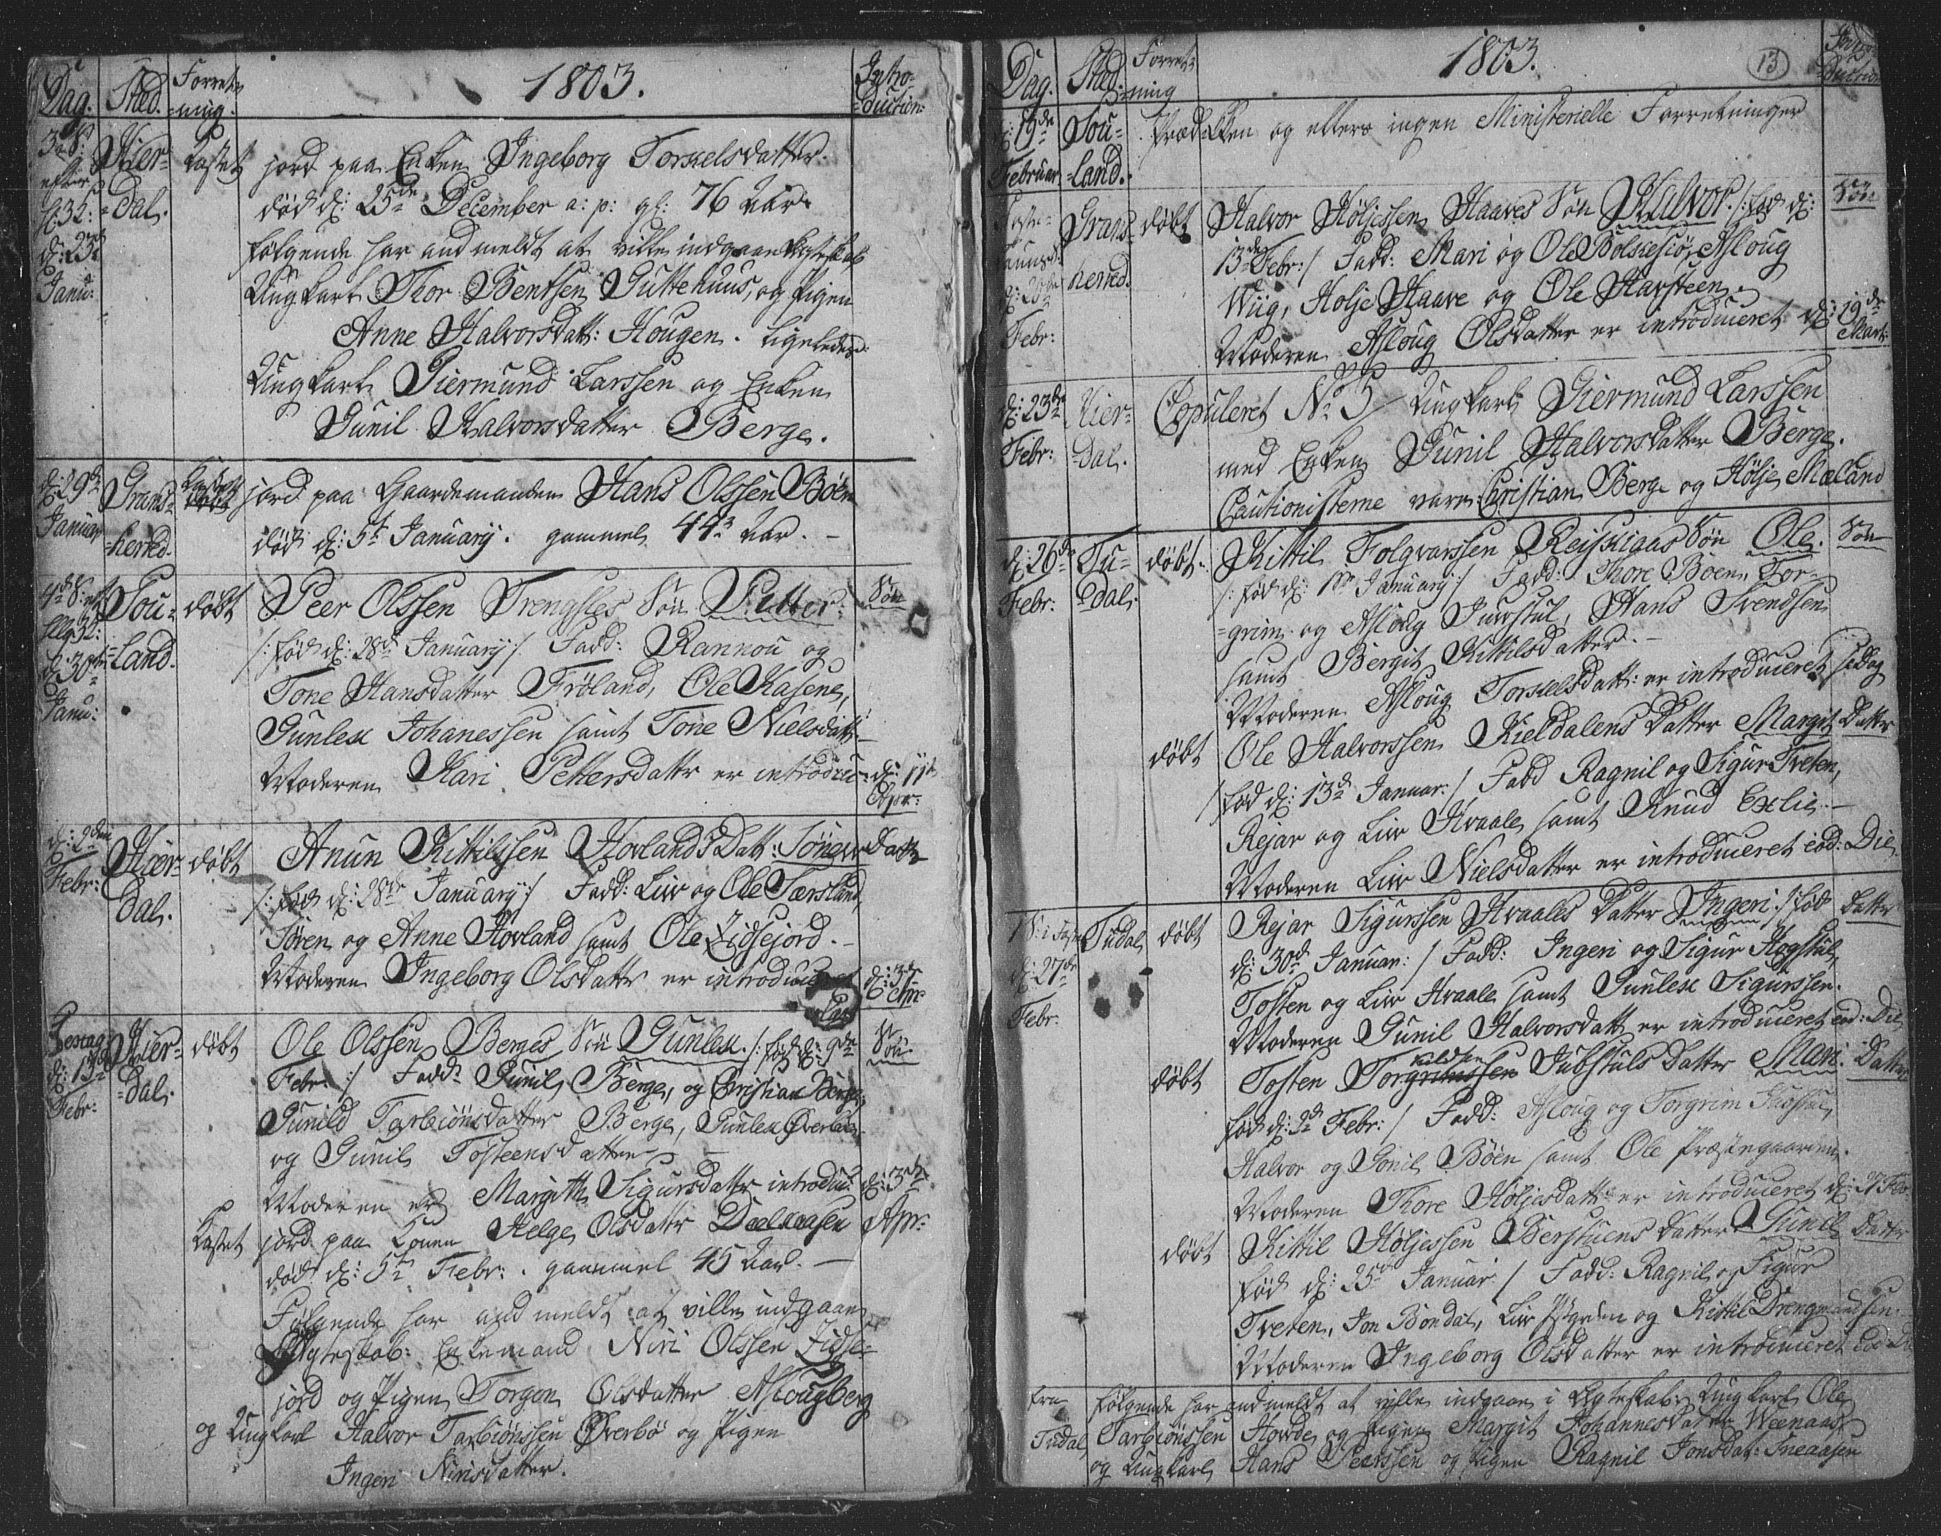 1803.
Dag. Sted. Forret-ning. Intro-duction:
3d S: efter H:3K: d: 23d Janu:
Hier-dal.
Kastet jord paa Enken Ingeborg Torkelsdatter.
død d: 25de December a: p: gl: 76 Aar.
følgende har andmeldt at ville indgaae Ægteskab
Ungkarl Thor Bentsen Guttehuus, og Pigen
Anne Halvorsdatt: Hougen. ligeledes
Ungkarl Giermund Larssen og Enken
Gunil Halvorsdatter Berge.
d: 29de Januar
Grans-herred.
Kastet jord paa Gaardemanden Hans Olssen Bøen
død d: 5t January. gammel 44 Aar. —
d: 30te Janu:
Sou-land.
døbt Peer Olssen Trengsles Søn Petter. Søn
/: fød d: 28d January :/ Fadd: Rannou og
Tone Hansdatter Frøland, Ole Kasene,
Gunlex Johanessen samt Tone Nielsdatt:
Moderen Kari Pettersdattr er introdu- d: 11t Apr:
d: 2den Febr:
Hier-dal.
døbt Anun Kittilssen Hovlands Datt: Datt:
/: fød d: 28de January :/ Fadd: Liv og Ole Særsland,
Søren og Anne Hovland samt Ole Lidsejord. —
Moderen Ingeborg Olsdattr er introduceret d: 3d Apr:
Festag d: 13de Febr:
Hier-dal.
døbt Ole Olssen Berges Søn Gunlex. /: fød d: 9de Søn
Febr: :/ Fadd: Gunil Berge, og Christian Berge,
Gunild Tarbiønsdatter Berge, Gunlex Øverbø
og Gunil Tosteensdatter. —
Moderen er Margith Sigursdattr introdu: d: 3de Apr:
Kastet jord paa Konen Helge Olsdattr Daalaasen
død d: 5te Febr: . gammel 45 Aar. —
Følgende har andmeldt at ville indgaae
Ægteskab: Enkemand Niri Olssen Lidse-
jord og Pigen Torgon Olsdatter Aslougberg
og Ungkarl Halvor Tarbiønssen Øverbø og Pigen
Ingeri Nirisdatter.
1803. 13
Dag. Sted. Forret-ning Intro-duction
d: 19de Februar
Sou-land.
Prædiken og ellers ingen Ministerielle Forretninger
Faste-launsd: d: 20de Febr:
Grans-herred.
døbt Halvor Høljessen Haaves Søn Halvor. /: fød d: Søn
13de Febr: / Fadd: Mari og Ole Bolkesiø, Asloug
Wiig, Holje Haave og Ole Harsteen.
Moderen Asloug Olsdatter er introduceret d: 19de Mart:
d: 23de Febr:
Hier-dal.
Copuleret No 5 / Ungkarl Giermund Larssen
med Enken Gunil Halvorsdatter Berge.
Cautionisterne vare Christian Berge og Hølje Mæland
d: 26de Febr:
Tu-dal.
døbt. Kittil Folqvarssen Reisjaas Søn Ole. Søn
/: fød d: 1ste January :/ Fadd: Thore Bøen, Tor-
grim og Asloug Juvstul, Hans Svendsen
samt Bergit Kittilsdatter. —
Moderen Asloug Torkelsdatt: er introduceret s: Dag
døbt Ole Halvorssen Kieldalens Datter Margit Datter
/ fød d: 13de Januar: / Fadd Ragnil og Sigur Tveten,
Rejar og Liv Hvaale samt Knud Exlie. —
Moderen Liv Nielsdatter er introduceret eod: Die
d: 27de Febr:
Tudal
døbt Rejar Sigurssen Hvaales Datter Ingeri /: fød Datter
d: 30d Januar: / Fadd: Ingeri og Sigur Kogstul,
Tosten og Liv Hvaale samt Gunlex Sigurssen.
Moderen Gunil Halvorsdatt er introduceret eod: Die
døbt Tosten Jubstuls Datter Mari. Datter
fød d: 2d Febr: / Fadd: Asloug og Torgrim
Halvor og Gonil Bøen samt Ole Præstegaarden.
Moderen Thore Høljesdattr er introduceret d: 27 Febr
døbt Kittil Høljessen Berstuens Datter Gunil Datter
fød d: 25de Januar / Fadd: Ragnil og Sigur
Tveten, Jon Bondal, Liv og Kittil Drengmandsen.
Moderen Ingeborg Olsdatter er introduceret eod Die
fra Tudal
følgende har andmeldt at ville indgaae i Ægteskab: Ungkarl Ole
Tarbiønssen Hovde og Pigen Margit Johannesdatter Weenaas
og Ungkarl Hans Peerssen og Pigen Ragnil Jonsdat: Sneaasen